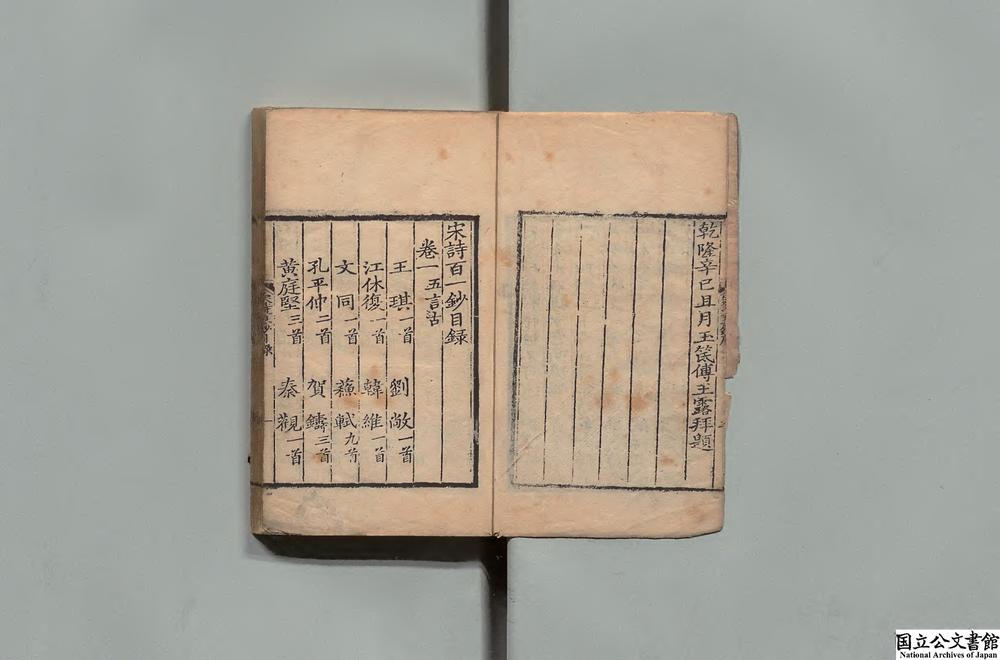 乾隆辛巳且月玉笥傅王露拜題
宋詩百一鈔目録
卷一五言古
王琪一首　劉敞一首
江休復一首　韓維一首
文同一首　蘇軾九首
孔平仲二首　賀鑄三首
黄庭堅三首　秦觀一首
国立公文書館
National Archives of Japan